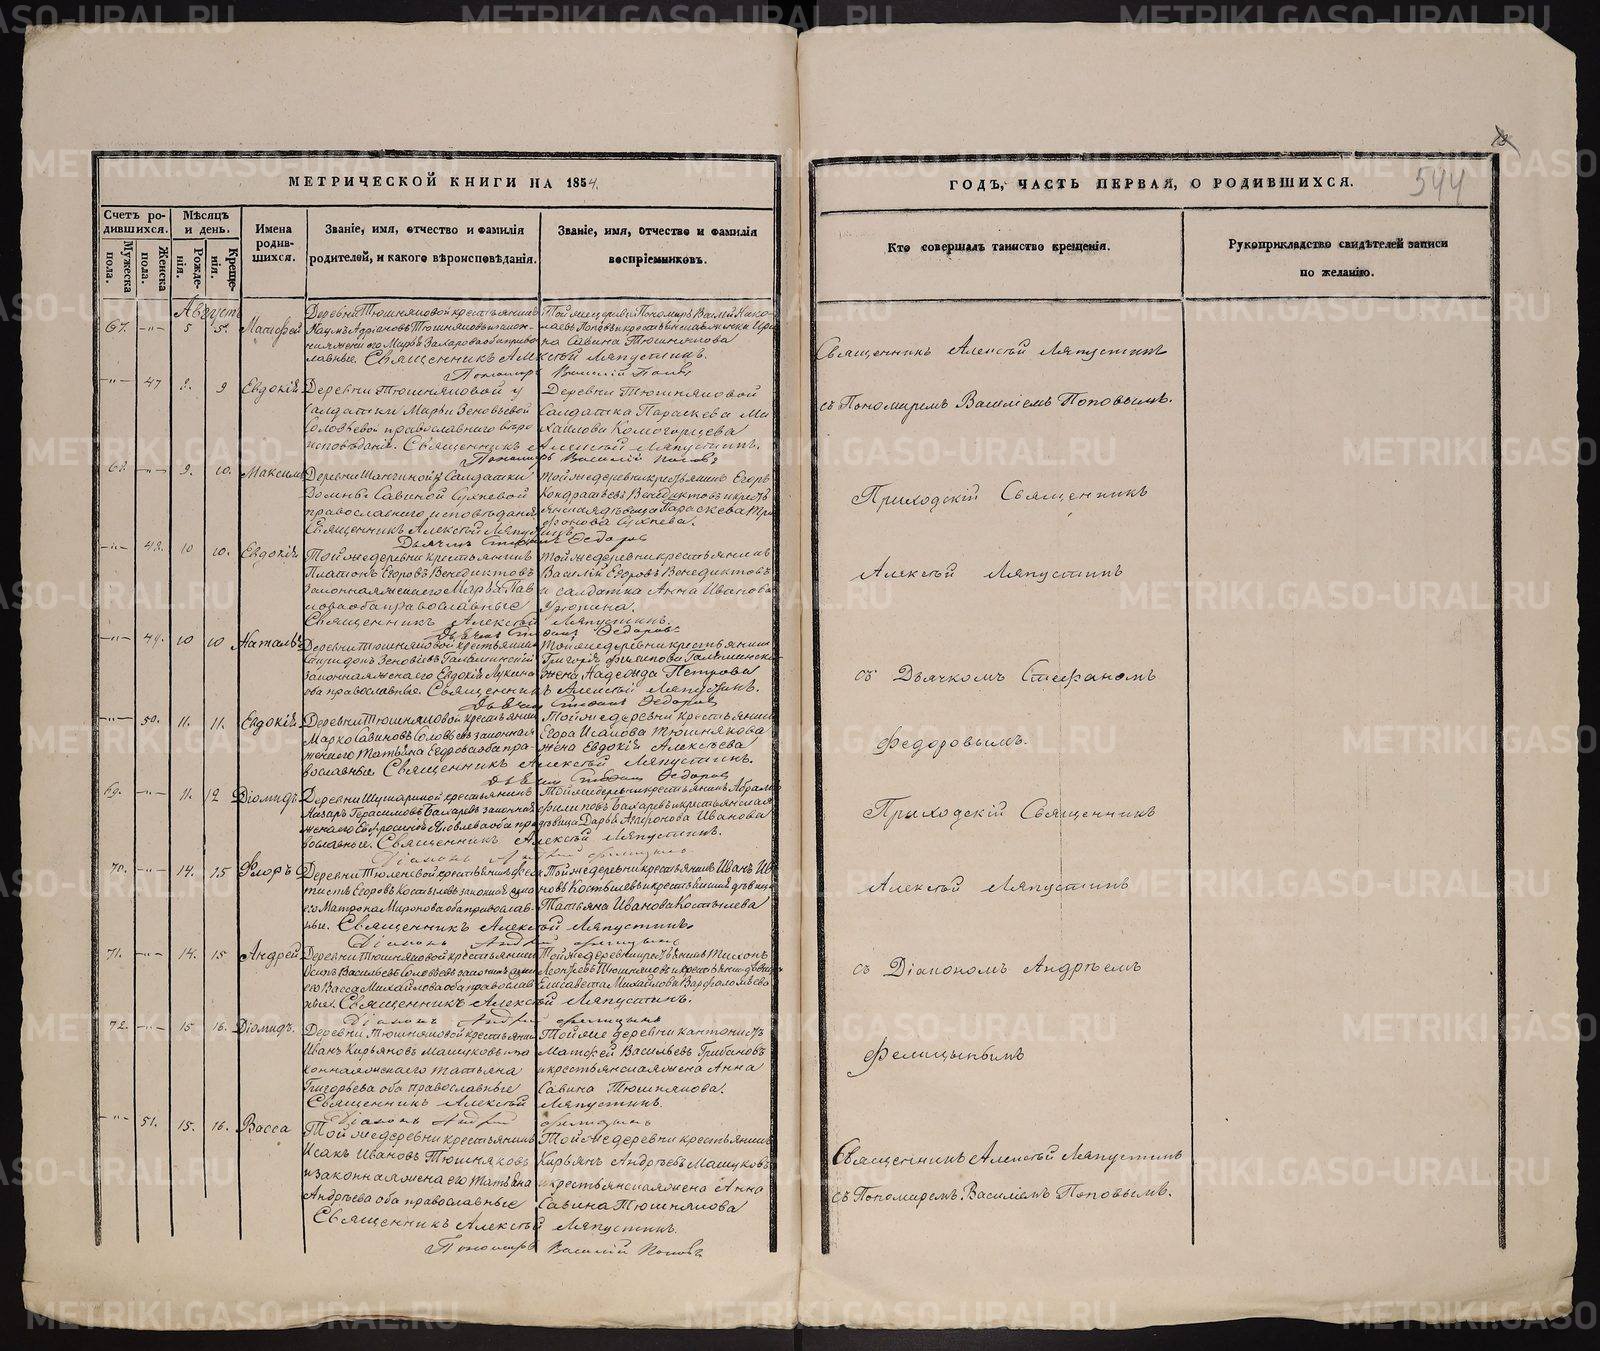 МЕТРИЧЕСКОЙ КНИГИ НА 1854.
Счетъ ро-
дившихся.
Мужеска
пола.
Женска
пола.
Мѣсяцъ
и день.
Рожде-
нія.
Креще-
нія.
Имена
родив-
шихся.
Званіе, имя, отчество и фамилія
родителей, и какого вѣроисповѣданія.
Званіе, имя, отчество и фамилія
воспріемниковъ.
Августъ
67. 5 5.
Деревни Тюшняковой крестьянинъ
Наумъ Адріановъ Тюшняковъ и закон-
ная жена его Марѳа Захарова оба право-
славные. Священникъ Алексѣй Ляпустинъ.
Пономарь Василій Поповъ
47 9 Евдокія
Деревни Тюшняковой у
Солдатки Марьи Зеновьевой
Соловьевой православнаго вѣро
исповѣданія. Священникъ Алексѣй Ляпустинъ.
Деревни Тюшняковой
Солдатка Параскева Ми
хайлова Комогорцева
Пономарь Василій Поповъ
68. 9. 10. Максимъ
Солдатки
Домны Савиной
православнаго исповѣданія
Священникъ Алексѣй Ляпустинъ
Той же деревни крестьянинъ Егоръ
Кондратьевъ Венедиктовъ и кресть
янская дѣвица Параскева Три
фонова
Дьячекъ Стефанъ Федоровъ
48. 10 10. Евдокія
Той же деревни крестьянинъ
Платонъ Егоровъ Венедиктовъ
законная жена его Марѳа Пав
лова оба православные
Священникъ Алексѣй Ляпустинъ.
Той же деревни крестьянинъ
Василій Егоровъ Венедиктовъ
и солдатка Анна Иванова
Дьячекъ Стефанъ Федоровъ
49. 10 10 Наталья
Деревни Тюшняковой крестьянинъ
Спиридонъ Зеновьевъ
законная жена его Евдокія Лукина
оба православные. Священникъ Алексѣй Ляпустинъ.
Той же деревни крестьянина
Григорія Филипова
жена Надежда Петрова
Дьячекъ Стефанъ Федоровъ
50. 11. 11. Евдокія
Деревни Тюшняковой крестьянинъ
Марко Савиновъ Соловьевъ законная
жена его Татьяна Федорова оба пра-
вославные Священникъ Алексѣй Ляпустинъ.
Той же деревни крестьянина
Егора Исакова Тюшнякова
жена Евдокія Алексѣева
Дьячекъ Стефанъ Федоровъ
69. 11. 12 Діомидъ
крестьянинъ
Назаръ Герасимовъ Бахаревъ законная
жена его Ефросинія Яковлева оба пра
вославные. Священникъ Алексѣй Ляпустинъ.
Той же деревни крестьянинъ Абрамъ
Филиповъ Бахаревъ и крестьянская
дѣвица Дарья Иванова
Діаконъ Андрей Фелицынъ
70. 14. 15 Флоръ
крестьянинъ
Егоровъ Костылевъ законная жена
его Матрона Миронова оба православ-
ные. Священникъ Алексѣй Ляпустинъ.
Той же деревни крестьянинъ Иванъ Ив
новъ Костылевъ и крестьянская дѣвица
Татьяна Иванова Костылева
Діаконъ Андрей Фелицынъ
71. 14. 15 Андрей
Деревни Тюшняковой крестьянинъ
Осипъ Васильевъ Соловьевъ законная жена
его Васса Михайлова оба православ
ные. Священникъ Алексѣй Ляпустинъ.
Той же деревни крестьянинъ Тихонъ
Леонтьевъ Тюшняковъ и крестьянск дѣвица
Елисавета Михайлова Варфоломѣева
Діаконъ Андрей Фелицынъ
72. 15 16. Діомидъ.
Деревни Тюшняковой крестьянинъ
Иванъ Кирьяновъ Машуковъ и за
конная жена его Татьяна
Григорьева оба православные
Священникъ Алексѣй Ляпустинъ.
Той же деревни кантонистъ
Матфей Васильевъ Грибановъ
и крестьянская жена Анна
Савина Тюшнякова.
Діаконъ Андрей Фелицынъ
51. 15. 16. Васса
Той же деревни крестьянинъ
Исакъ Ивановъ Тюшняковъ
и законная жена его Татьяна
Андрѣева оба православные
Священникъ Алексѣй Ляпустинъ.
Той же деревни крестьянинъ
Кирьянъ Андрѣевъ Машуковъ
и крестьянская жена Анна
Савина Тюшнякова
Пономарь Василій Поповъ
ГОДЪ, ЧАСТЬ ПЕРВАЯ, О РОДИВШИХСЯ.
544
Кто совершалъ таинство крещенія.
Рукоприкладство свидѣтелей записи
по желанію.
Священникъ Алексѣй Ляпустинъ
съ Пономаремъ Василіемъ Поповымъ.
Приходскій Священникъ
Алексѣй Ляпустинъ
съ Дьячкомъ Стефаномъ
Федоровымъ.
Приходскій Священникъ
Алексѣй Ляпустинъ
съ Діакономъ Андрѣемъ
Фелицынымъ
Священникъ Алексѣй Ляпустинъ
съ Пономаремъ Василіемъ Поповымъ.
METRIKI.GASO-URAL.RU